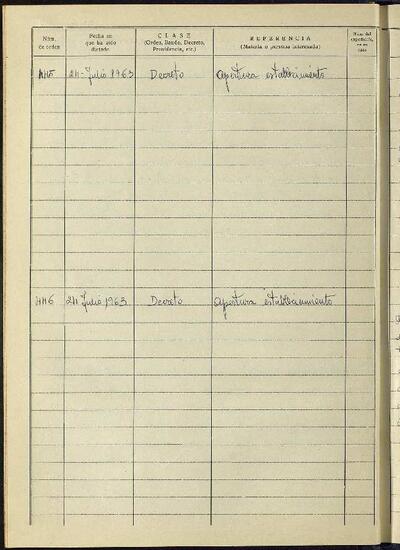 Núm.
de orden
Fecha en
que ha sido
dictado
CLASE
(Orden, Bando, Decreto,
Providencia, etc.)
REFERENCIA
(Materia o persona interesada)
Núm. del
expediente,
en su
caso
445 24-Julio 1963 Decreto apertura establecimiento
446 24 Julio 1963 Decreto apertura establecimiento